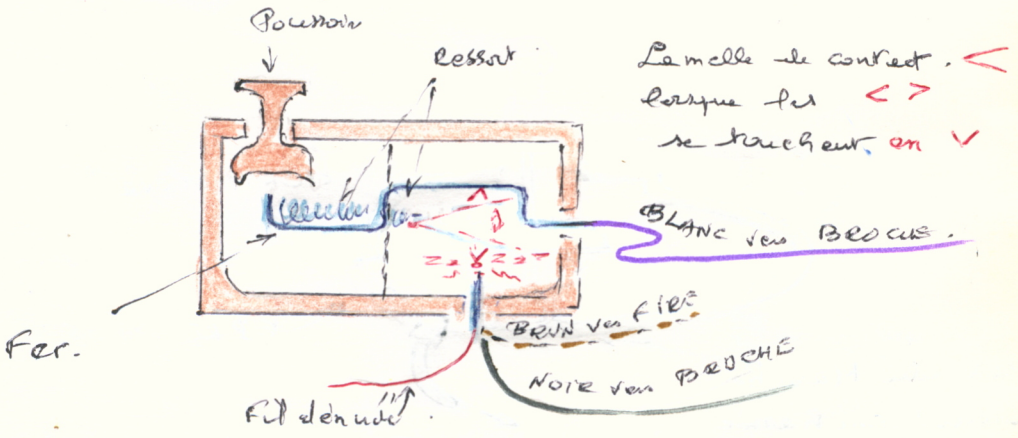 Poussoir
Ressort
Lamelle de contact. <
lorsque les < >
se touchent. on v
BLANC vers BROCHE.
BRUN vers FIRE
NOIR vers BROCHE
Fer.
Fil dénudé.